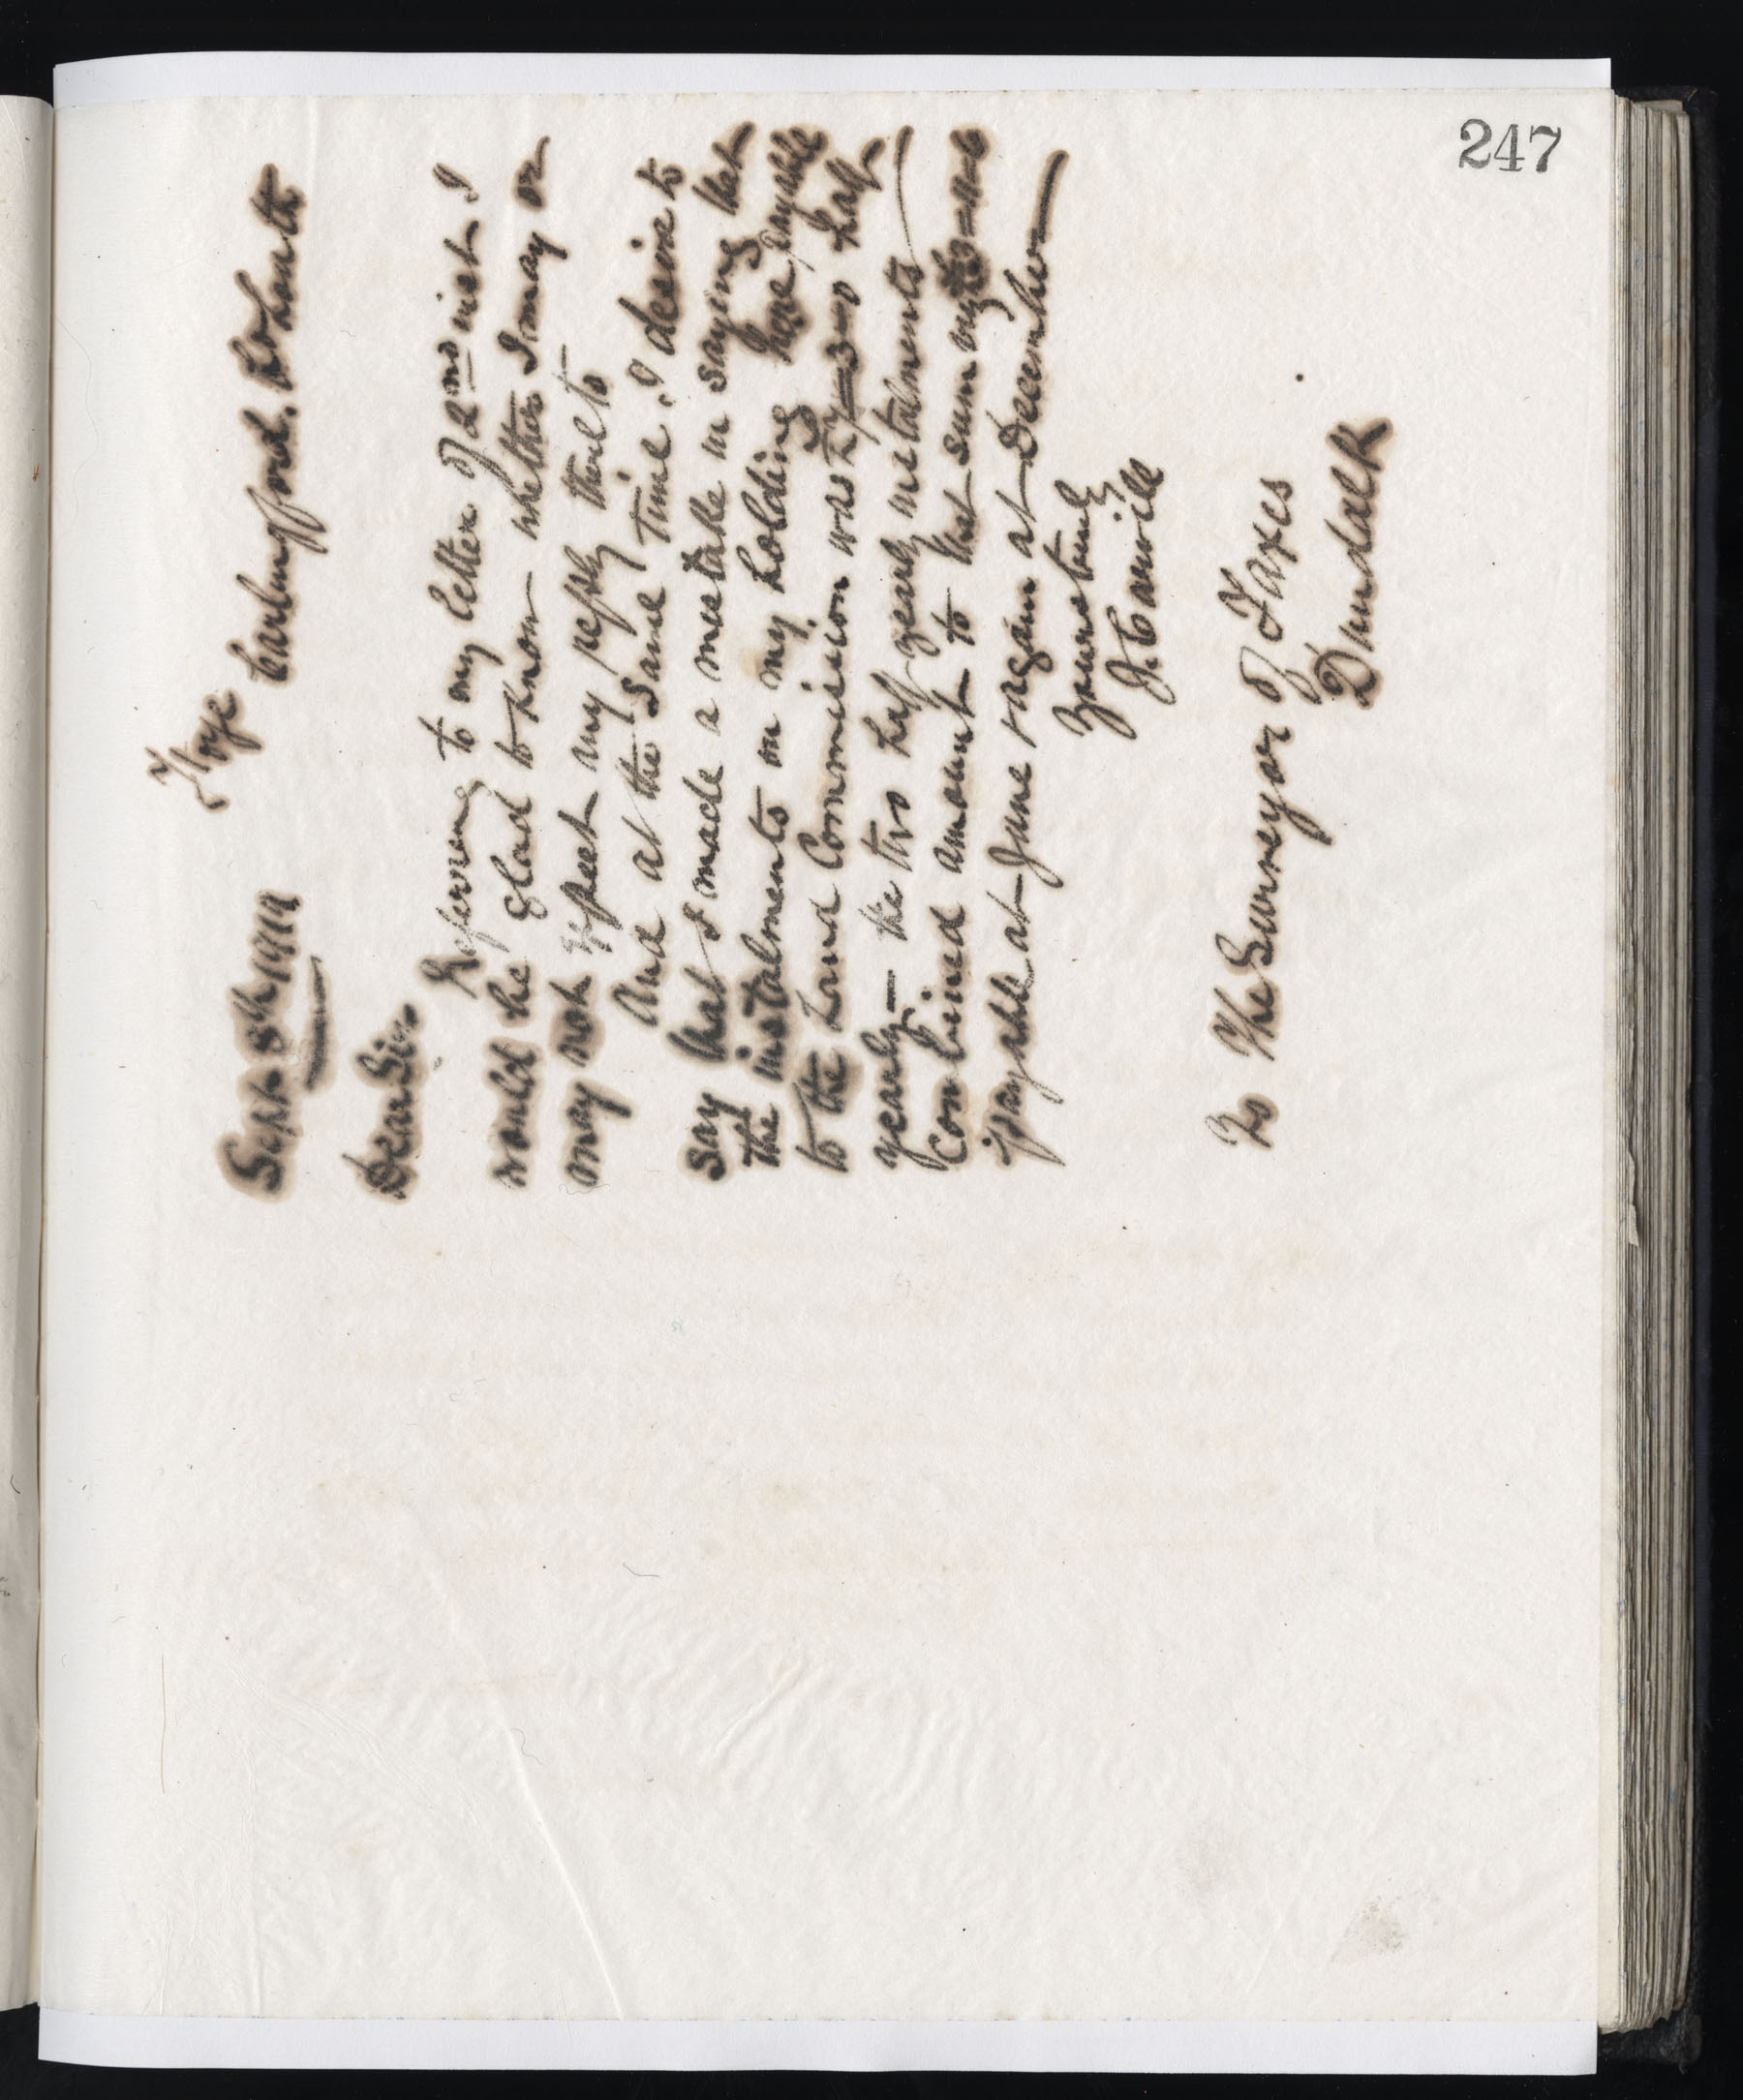 247
Foye
Carlingford. Co Louth
Sept 8th 1919
Dear Sir
Referring to my letter of 2nd inst I
would be glad to know whether I may or
may not expect any reply thereto
And at the same time I desire to
say that I made a mistake in saying that
the instalments on my holding here payable
to the Land Commission was £7-3-0 half
yearly — the two half yearly instalments
combined amount to that sum only
payable at June & again at December
Yours truly
J. Carvill
To The Surveyor of Taxes
Dundalk